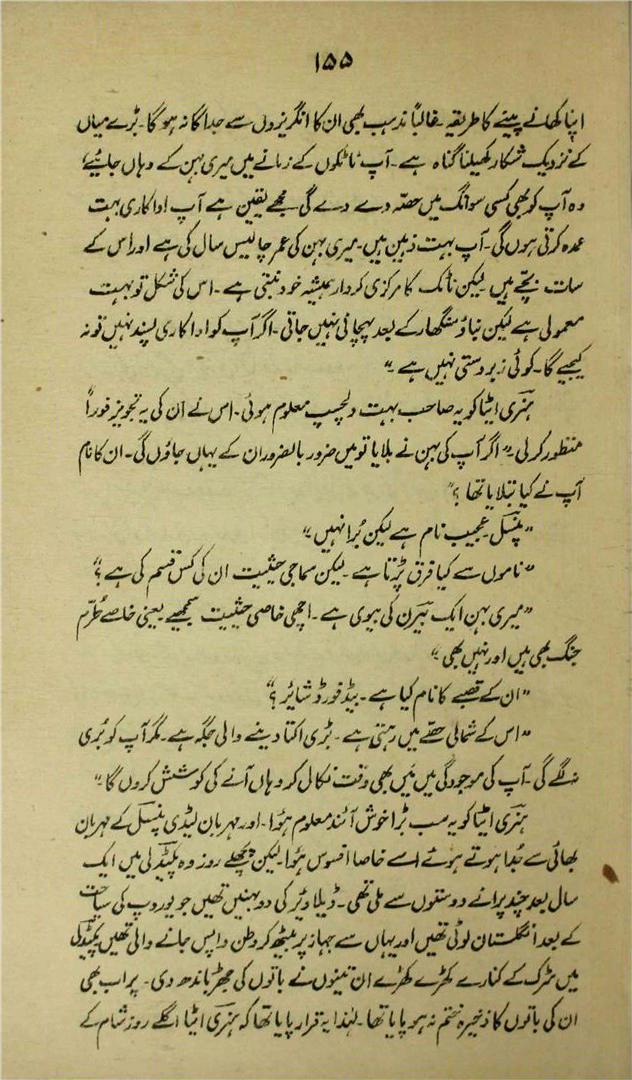 ۱۵۵
اپنا کھانے پینے کا طریقہ ۔ غالباً مذہب بھی ان کا انگریزوں سے جداگانہ ہوگا۔ بڑے میاں
کے نزدیک شکار کھیلنا گناہ ہے۔ آپ ناٹکوں کے زمانے میں میری بہن کے وہاں جائیے
وہ آپ کو بھی کسی سوانگ میں حصہ دے دے گی مجھے یقین ہے آپ اداکاری بہت
عمدہ کرتی ہوں گی۔ آپ بہت ذہین ہیں۔ میری بہن کی عمر چالیس سال کی ہے اور اس کے
سات بچے ہیں لیکن ناٹک کا مرکزی کردار ہمیشہ خود بنتی ہے۔ اس کی شکل تو بہت
معمولی ہے لیکن بناؤ سنگھار کے بعد پہچانی نہیں جاتی۔ اگر آپ کو اداکاری پسند نہیں تو نہ
کیجیے گا۔ کوئی زبردستی نہیں ہے۔"
ہنری ایٹا کو یہ صاحب بہت دلچسپ معلوم ہوئی۔ اس نے ان کی یہ تجویز فوراً
منظور کر لی۔ "اگر آپ کی بہن نے بلایا تو میں ضرور بالضرور ان کے یہاں جاؤں گی۔ ان کا نام
آپ نے کیا بتلایا تھا ؟"
"پنسل۔ عجیب نام ہے لیکن بُرا نہیں۔"
"ناموں سے کیا فرق پڑتا ہے۔ لیکن سماجی حیثیت ان کی کس قسم کی ہے؟"
"میری بہن ایک بیرن کی بیوی ہے۔ اچھی خاصی حیثیت سمجھیے یعنی خاصے خرّم
جنگ بھی ہیں اور نہیں بھی۔"
"ان کے قصبے کا نام کیا ہے۔ بیڈفورڈ شائر؟"
"اس کے شمالی حصے میں رہتی ہے۔ بڑی اکتا دینے والی جگہ ہے۔ مگر آپ کو بُری
نہ لگے گی۔ آپ کی موجودگی میں میں بھی وقت نکال کر وہاں آنے کی کوشش کروں گا۔"
ہنری ایٹا کو یہ سب بڑا خوش آئند معلوم ہوا۔ اور مہربان لیڈی پنسل کے مہربان
بھائی سے جُدا ہوتے ہوئے اسے خاصا افسوس ہوا لیکن پچھلے روز وہ پکیڈلی میں ایک
سال بعد چند پرانے دوستوں سے ملی تھی۔ ڈیلاویئر کی دو بہنیں تھیں جو یوروپ کی سیاحت
کے بعد انگلستان لوٹی تھیں اور یہاں سے جہاز پر بیٹھ کر وطن واپس جانے والی تھیں پکیڈلی
میں سڑک کے کنارے کھڑے کھڑے ان تینوں نے باتوں کی جھڑ باندھ دی۔ پر اب بھی
ان کی باتوں کا ذخیرہ ختم نہ ہو پایا تھا۔ لہٰذا یہ قرار پایا تھا کہ ہنری ایٹا اگلے روز شام کے